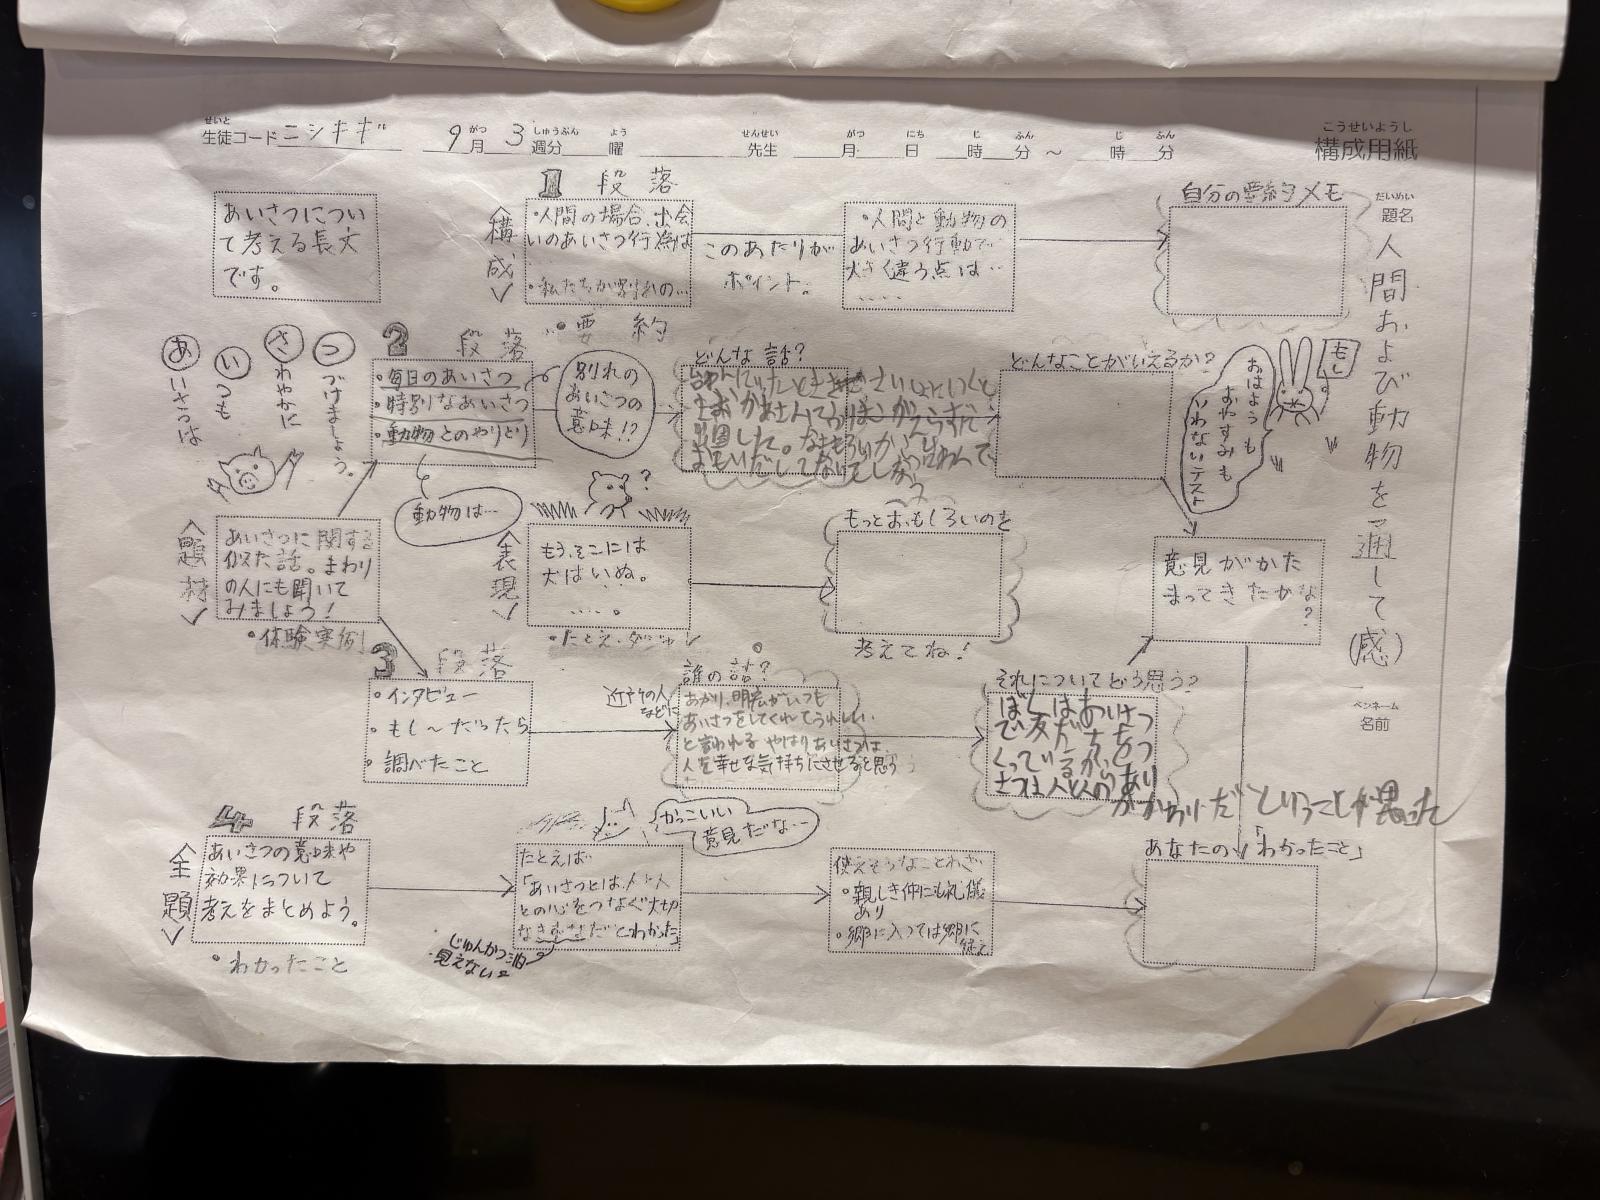 せいと がつ しゅうぶん よう せんせい がつ にち じ ふん じ ふん
生徒コード ニシキギ 9月 3週分 曜 先生 月 日 時 分 ～ 時 分
こうせいようし
構成用紙
だいめい
題名
人間および動物を通して(感)
ペンネーム
名前
あいさつについ
て考える長文
です。
1 段落
〈構成〉
・人間の場合、出会
いのあいさつ行為は
・私たちが別れの…
・要約
このあたりが
ポイント。
・人間と動物の
あいさつ行動で
大きく違う点は…
‥‥
自分の要約メモ
あいさつは
いつも
さわやかに
つづけましょう。
2 段落
・毎日のあいさつ
・特別なあいさつ
・動物とのやりとり
別れの
あいさつの
意味!?
動物は…
どんな話?
どんなことがいえるか?
もし
おはようも
おやすみも
いわないテスト
〈題材〉
あいさつに関する
似た話。まわり
の人にも聞いて
みましょう!
・体験実例
〈表現〉
?
もう、そこには
犬はいぬ。
‥‥。
・たとえ・ダジャレ
もっとおもしろいのを
考えてね!
意見がかた
まってきたかな
?
3 段落
・インタビュー
・もし～だったら
・調べたこと
近所の人
などに
誰の話?
あかり、明宏がいつも
あいさつをしてくれてうれしい
と言われる やはりあいさつは、
人を幸せな気持ちにさせると思う
それについてどう思う?
ぼくはあいさつ
で友だ
くっているから
4 段落
〈主題〉
あいさつの意味や
効果について
考えをまとめよう。
・わかったこと
かっこいい
意見だな…
たとえば
「あいさつとは、人と人
との心をつなぐ大切
なきずなだとわかった」
じゅんかつ油
見えない
使えそうなことわざ
・親しき仲にも礼儀
あり
・郷に入っては郷に
従え
あなたの「わかったこと」